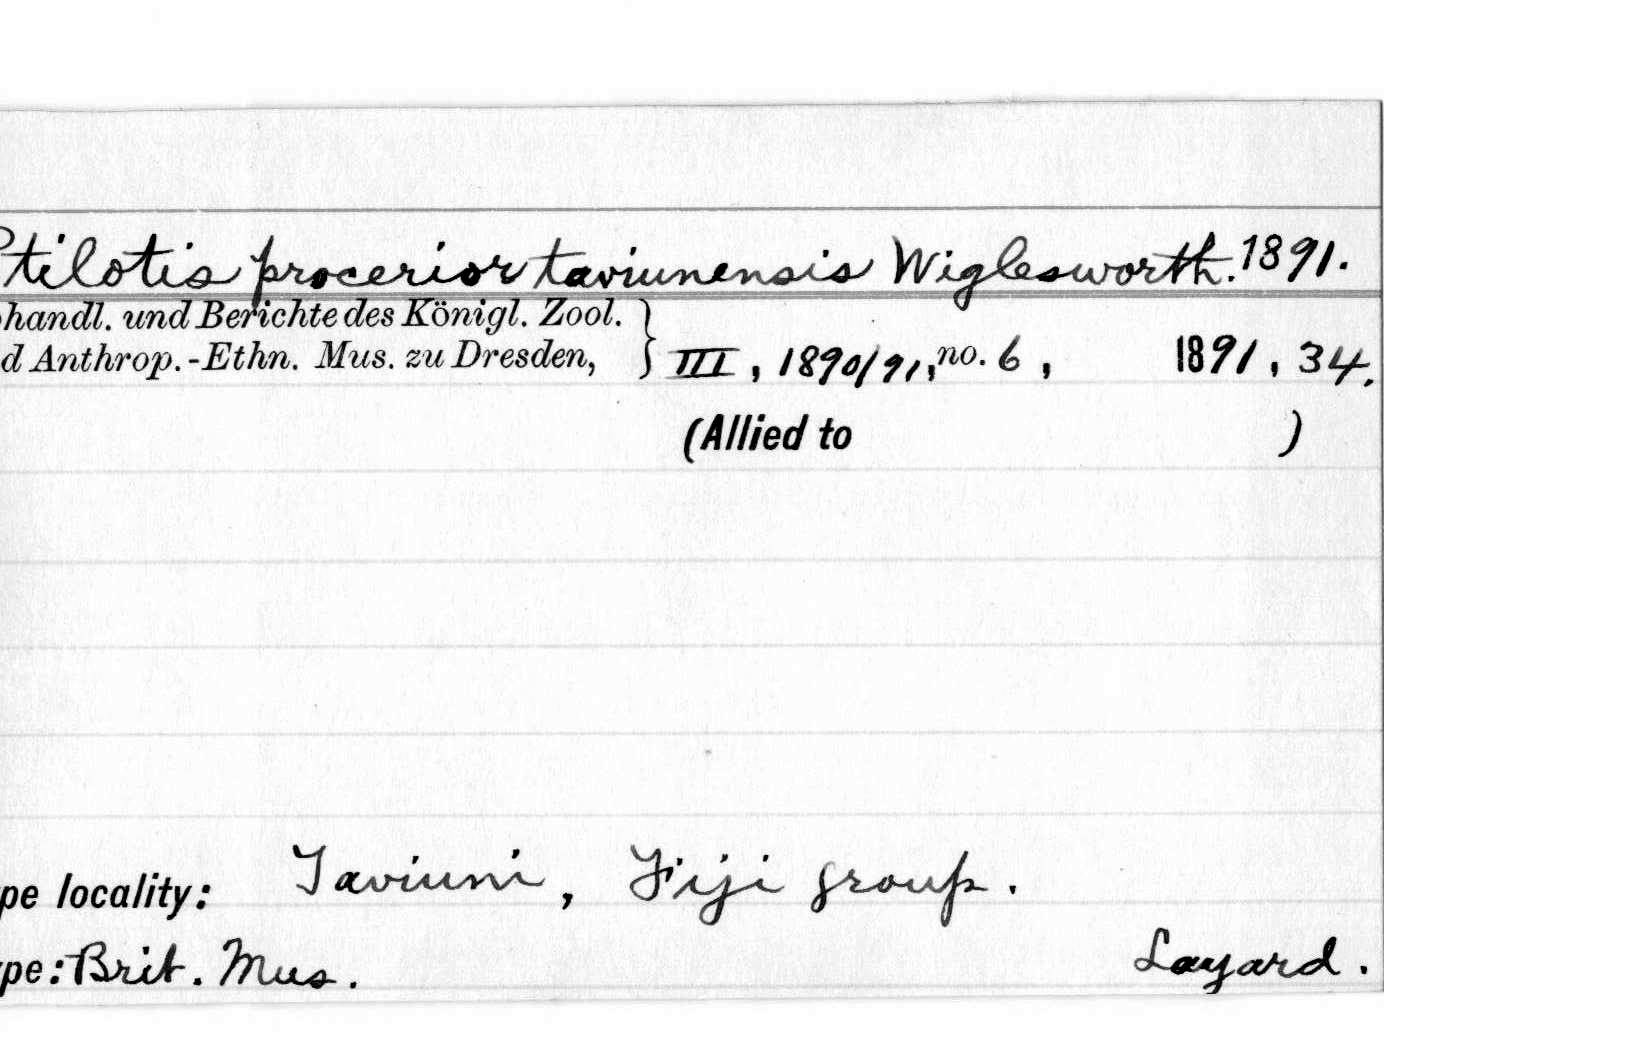 Ptilotis procerior taviunensis Wiglesworth. 1891.
bhandl. und Berichte des Königl. Zool.
d Anthrop.-Ethn. Mus. zu Dresden, } III, 1890/91, no. 6, 1891, 34.
(Allied to )
pe locality: Taviuni, Fiji group.
ype: Brit. Mus. Layard.